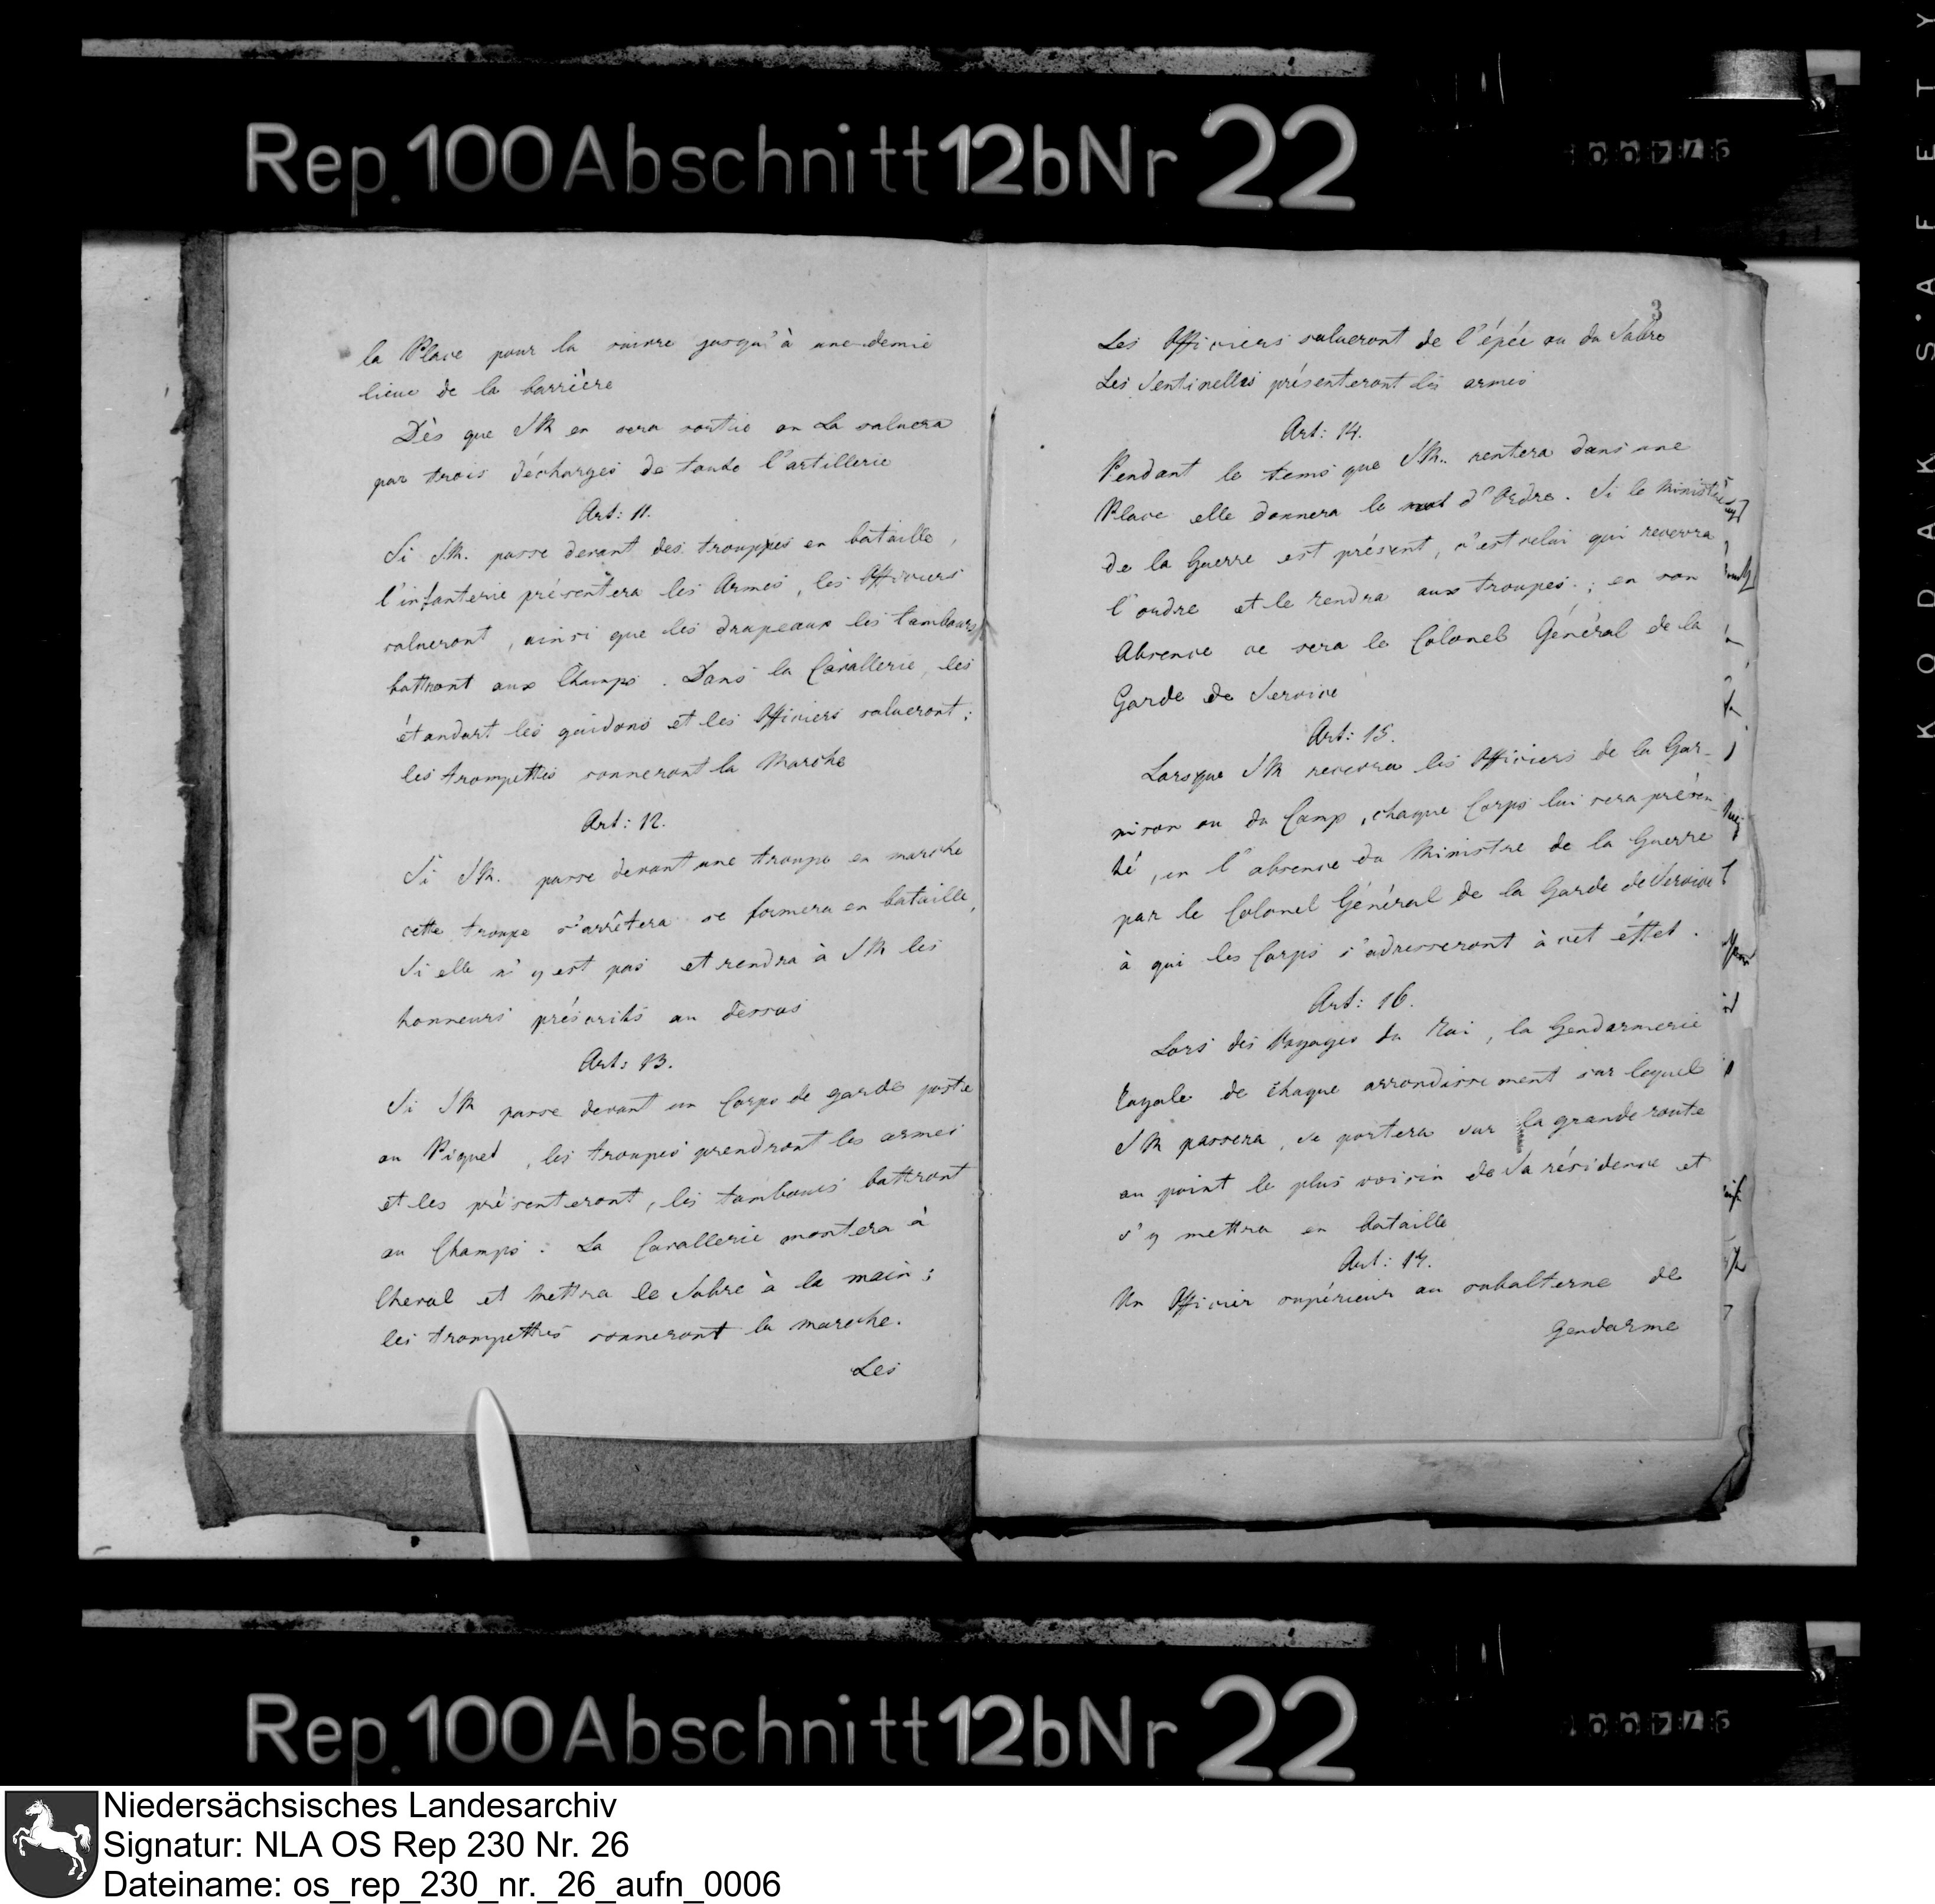 Rep. 100 Abschnitt 12b Nr 22
la Place pour la suivre jusqu'à une demie
lieue de la barrière
Dès que S M en sera sortie on La saluera
par trois décharges de toute l'artillerie
Art: 11.
Si S M. passe devant des trouppes en bataille,
l'infanterie présentera les Armes, les Officiers
salueront, ainsi que les drapeaux les tambours
battront aux Champs. Dans la Cavallerie, les
étandart les guidons et les Officiers salueront;
les trompettes sonneront la Marche
Art: 12.
Si S M. passe devant une troupe en marche
cette troupe s'arrêtera se formera en bataille,
Si elle n'y est pas et rendra à S M les
honneurs préscrits au dessus
Art: 13.
Si S M passe devant un Corps de garde poste
ou Piquet, les troupes prendront les armes
et les présenteront, les tambours battront
au Champs: La Cavallerie montera à
Cheval et mettra le Sabre à la main;
les trompettes sonneront la marche.
Les
3
Les Officiers salueront de l'épée ou du Sabre
Les Sentinelles présenteront les armes
Art: 14.
Pendant le tems que S M. rentera dans une
Place elle donnera le mot d'Ordre. Si le Ministre
de la Guerre est présent, c'est celui qui recevra
l'ordre et le rendra aux troupes; en son
Absence ce sera le Colonel Général de la
Garde de Service
Art: 15.
Lorsque S M recevra les Officiers de la Gar-
nison ou du Camp, chaque Corps lui sera présen-
té, en l'absence du Ministre de la Guerre
par le Colonel Général de la Garde de Service
à qui les Corps s'adresseront à cet éffet.
Art: 16.
Lors des Voyages du Roi, la Gendarmerie
Royale de chaque arrondissement sur lequel
S M passera, se portera sur la grande route
au point le plus voisin de Sa résidence et
s'y mettra en Bataille
Art: 17.
Un Officier supérieur ou subalterne de
Gendarme
KODAK S·AFETY
Rep. 100 Abschnitt 12b Nr 22
Niedersächsisches Landesarchiv
Signatur: NLA OS Rep 230 Nr. 26
Dateiname: os_rep_230_nr._26_aufn_0006